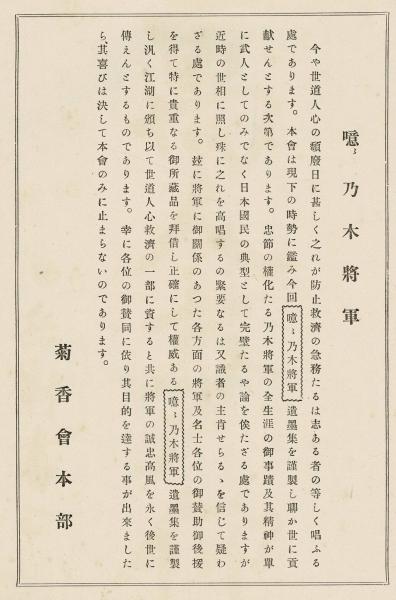 噫々乃木將軍
今や世道人心の頽廢日に甚しく之れが防止救濟の急務たるは志ある者の等しく唱ふる
處であります。本會は現下の時勢に鑑み今回噫々乃木將軍遺墨集を謹製し聊か世に貢
献せんとする次第であります。忠節の權化たる乃木將軍の全生涯の御事蹟及其精神が單
に武人としてのみでなく日本國民の典型として完璧たるや論を俟たざる處でありますが
近時の世相に照し殊に之れを高唱するの緊要なるは又識者の主肯せらるゝを信じて疑わ
ざる處であります。玆に將軍に御關係のあつた各方面の將軍及名士各位の御賛助御後援
を得て特に貴重なる御所藏品を拜借し正確にして權威ある噫々乃木將軍遺墨集を謹製
し汎く江湖に頒ち以て世道人心救濟の一部に資すると共に將軍の誠忠高風を永く後世に
傳えんとするものであります。幸に各位の御賛同に依り其目的を達する事が出來ました
ら、其喜びは決して本會のみに止まらないのであります。
菊香會本部